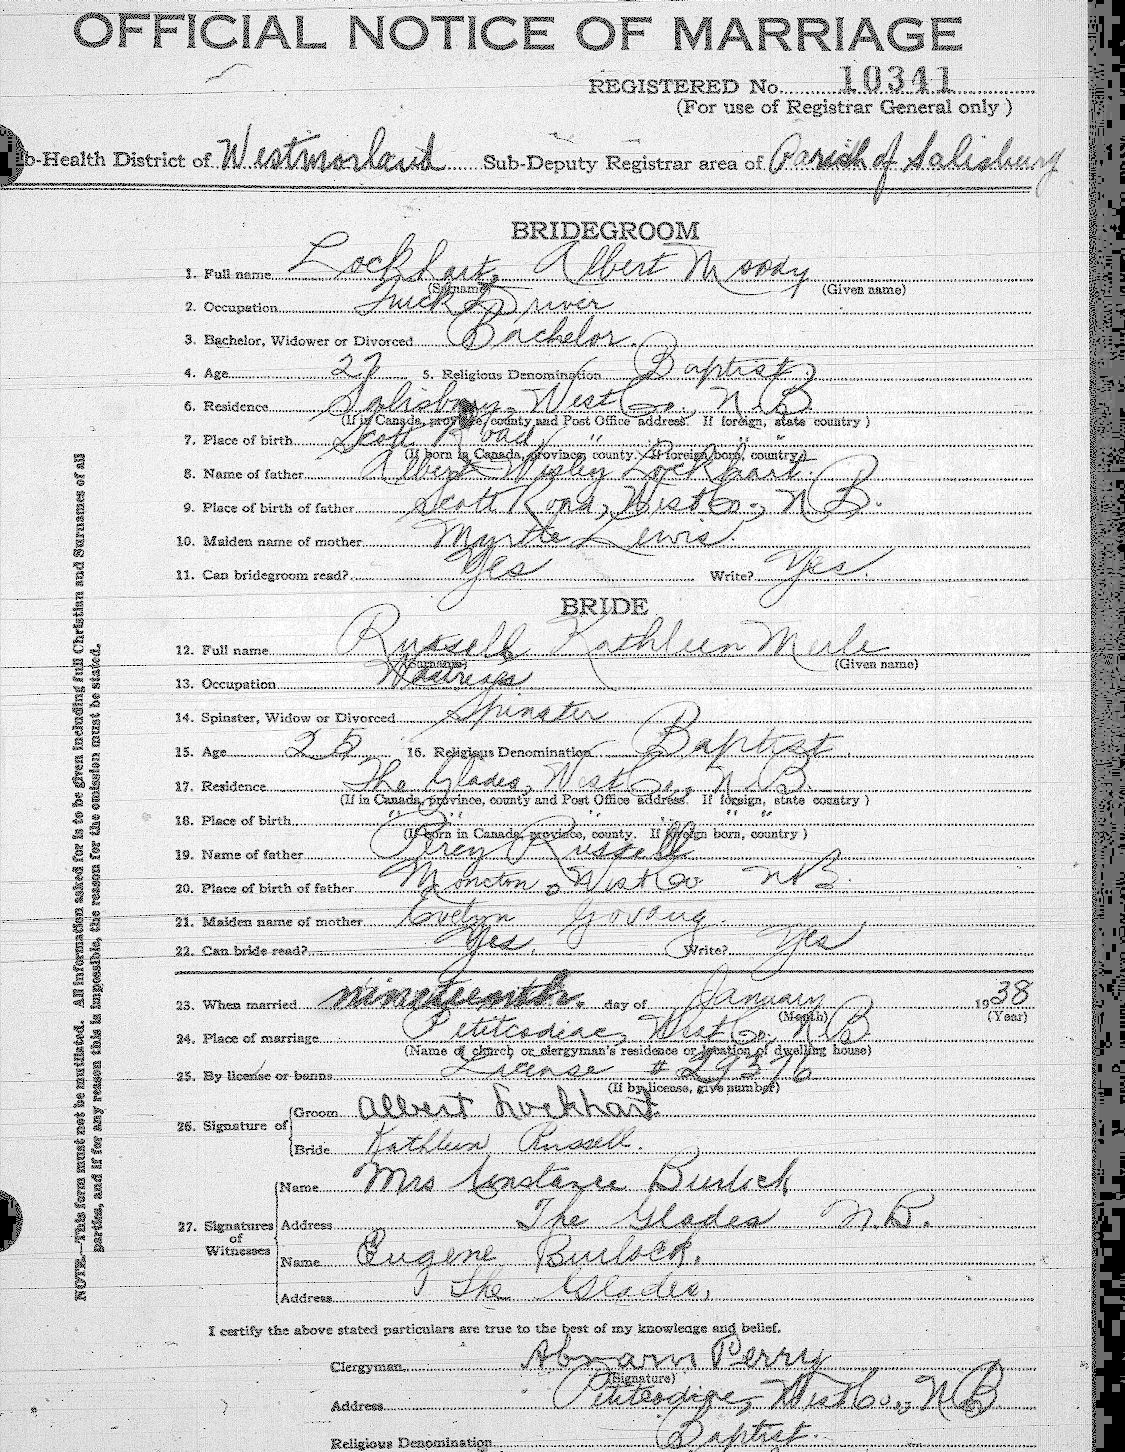 OFFICIAL NOTICE OF MARRIAGE
REGISTERED No. 10341
(For use of Registrar General only )
b-Health District of Westmorland Sub-Deputy Registrar area of Parish of Salisbury
BRIDEGROOM
1. Full name Lockhart, Albert Moody
(Surname) (Given name)
2. Occupation Truck Driver
3. Bachelor, Widower or Divorced Bachelor.
4. Age 27 5. Religious Denomination Baptist.
6. Residence Salisbury, West Co., N.B.
(If in Canada, province, county and Post Office address. If foreign, state country )
7. Place of birth Scott Road, " " "
(If born in Canada, province, county. If foreign born, country )
8. Name of father Albert Wesley Lockhart.
9. Place of birth of father Scott Road, West Co., N.B.
10. Maiden name of mother Myrtle Lewis.
11. Can bridegroom read? Yes Write? Yes.
BRIDE
12. Full name Russell Kathleen Merle
(Surname) (Given name)
13. Occupation Waitress
14. Spinster, Widow or Divorced Spinster
15. Age 25 16. Religious Denomination Baptist.
17. Residence The Glades, West Co., N.B.
(If in Canada, province, county and Post Office address. If foreign, state country )
18. Place of birth " " " " "
(If born in Canada, province, county. If foreign born, country )
19. Name of father Percy Russell
20. Place of birth of father Moncton, West Co N.B.
21. Maiden name of mother Evelyn
22. Can bride read? Yes. Write? Yes
23. When married nineteenth. day of January 1938
(Month) (Year)
24. Place of marriage Petitcodiac, West Co., N.B.
(Name of church or clergyman's residence or location of dwelling house)
25. By license or banns License # 29376
(If by license, give number)
26. Signature of
Groom Albert Lockhart.
Bride Kathleen Russell.
27. Signatures of Witnesses
Name Mrs Constance Burlock
Address The Glades N.B.
Name Eugene Burlock.
Address The Glades,
I certify the above stated particulars are true to the best of my knowledge and belief.
Clergyman Perry
(Signature)
Address Petitcodiac, West Co., N.B
Religious Denomination Baptist.
NOTE.—This form must not be mutilated. All information asked for is to be given including full Christian and Surnames of all
parties, and if for any reason this is impossible, the reason for the omission must be stated.